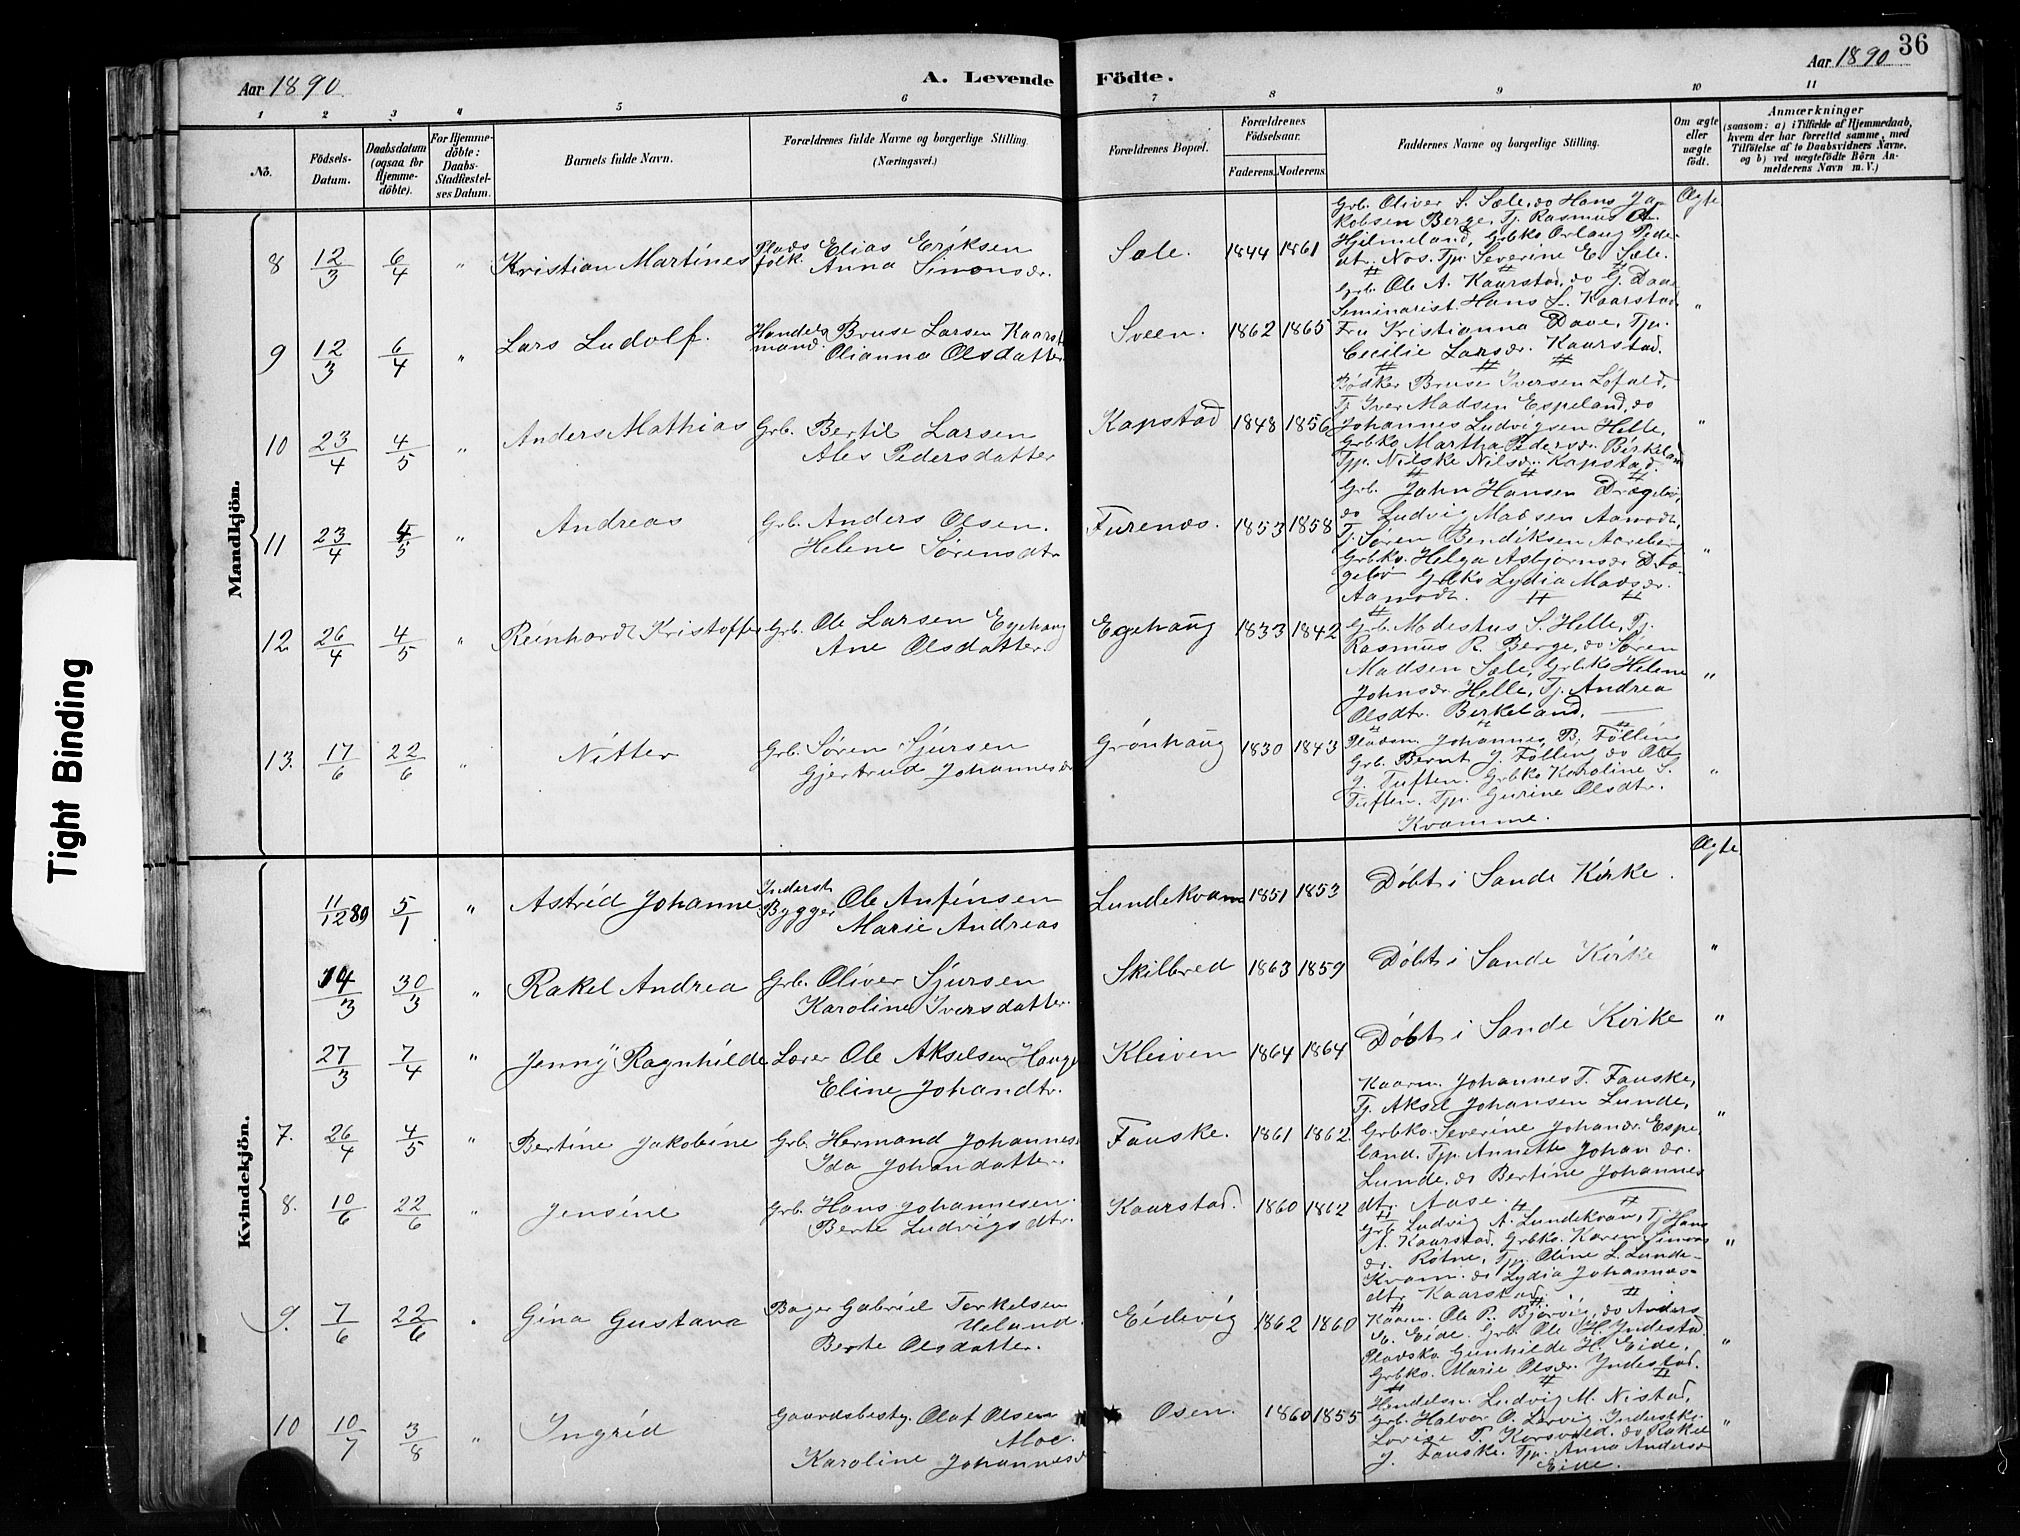 36
Aar 1890.
A. Levende Födte.
Aar 1890
1 2 3 4 5 6 7 8 9 10 11
No.
Födsels-Datum.
Daabsdatum (ogsaa for Hjemme-döbte).
For Hjemme-döbte: Daabs-Stadfæstel-ses Datum.
Barnets fulde Navn.
Forældrenes fulde Navne og borgerlige Stilling. (Næringsvei.)
Forældrenes Bopæl.
Forældrenes Födselsaar.
Faderens. Moderens.
Faddernes Navne og borgerlige Stilling.
Om ægte eller uægte födt.
Anmærkninger
(saasom: a) i Tilfælde af Hjemmedaab, hvem der har forrettet samme, med Tilföielse af to Daabsvidners Navne, og b) ved uægtefödte Börn An-melderens Navn m. V.)
Mandkjön.
8 12/3 6/4 " Kristian Martines Plads folk. Elias Eriksen
Anna Simonsdr. Sæle. 1844 1861 Ægte
Grb. Oliver S. Sæle, do Hans Ja-
kobsen Berge, Tj. Rasmus A.
Hjelmeland, Grbko Orlaug Peder
dtr. Nos. Tjp. Severine E. Sæle.
9 12/3 6/4 " Lars Ludolf. Handels mand. Bruse Larsen Kaarst
Olianna Olsdatter Sveen. 1862 1865 "
Grb. Ole A. Kaarstad, do G. Daae
Seminarist Hans L. Kaarstad
Fru Kristianna Daae, Tjp.
Cecilie Larsdr. Kaarstad.
10 23/4 4/5 " Anders Mathias Grb. Bertil Larsen
Ales Pedersdatter Kapstad 1848 1856 "
Bødker Bruse Iversen Løfald,
Tj. Iver Madsen Espeland, do
Johannes Ludvigsen Helle,
Grbko Martha Pedersdr. Birkeland
Tjp. Nilske Nilsdr. Kapstad.
11 23/4 4/5 " Andreas Grb. Anders Olsen.
Helene Sørensdtr Furenæs. 1853 1858 "
Grb. John Hansen Drægebø,
do Ludvig Madsen Aamodt,
Tj. Søren Bendiksen Aareber
Grbko. Helga Asbjørnsdr Dræ-
gebø Grbko Lydia Madsdr.
Aamodt.
12. 26/4 4/5 " Reinhardt Kristoffer Grb. Ole Larsen Egehaug
Ane Olsdatter Egehaug 1833 1842 "
Grb. Modestus S. Helle, Tj.
Rasmus R. Berge, do Søren
Madsen Sæle, Grbko Helene
Johnsdr Helle, Tj. Andrea
Olsdtr. Berkeland.
13. 17/6 22/6 " Nitter Grb. Søren Sjursen
Gjertrud Johannesdr Grønhaug 1830 1843 "
Pladsm. Johannes B. Følling
Grb. Bernt J. Følling do Ole
J. Tuften. Grbko Karoline S.
Tuften. Tjp. Gurine Olsdtr.
Kvamme.
Kvindekjön.
11/12 89 5/1 " Astrid Johanne Inderst Bygger Ole Anfinsen
Marie Andreas Lundekvam 1851 1853 Døbt i Sande Kirke. Ægte
14/3 30/3 " Rakel Andrea Grb. Oliver Sjursen
Karoline Iversdatter Skilbred 1863 1859 Døbt i Sande Kirke "
27/3 7/4 " Jenny Ragnhilde Lærer Ole Akselsen Hauge
Eline Johandtr. Kleiven 1864 1864 Døbt i Sande Kirke "
7. 26/4 4/5 " Bertine Jakobine Grb. Hermand Johannes
Ida Johandatter. Fauske. 1861 1862 "
Kaarm. Johannes T. Fauske,
Tj. Aksel Johansen Lunde,
Grbko. Severine Johandr. Espe
land. Tjp. Annette Johan dr.
Lunde. do Bertine Johannes
dtr. Aase.
8. 10/6 22/6 " Jensine Grb. Hans Johannesen.
Berte Ludvigsdtr. Kaarstad. 1860 1862 "
Grb. Ludvig A. Lundekvam, Tj Hans
A. Kaarstad. Grbko. Karen Simons
dr. Rotne, Tjp. Oline L. Lunde-
kvam. do Lydia Johannes-
dtr Kaarstad.
9. 7/6 22/6 " Gina Gustava Bager Gabriel Torkelsen
Ueland.
Berte Olsdatter. Eidevig 1862 1860 "
Kaarm. Ole P. Bjørvig, do Anders
E. Eide. Grb. Ole H. Indestad.
Pladsko Gunhilde H. Eide,
Grbko. Marie Olsdr. Indestad.
10 10/7 3/8 " Ingrid Gaardsbesty. Olaf Olsen
Moe.
Karoline Johannesd Osen. 1860 1855 "
Handelsm. Ludvig M. Nistad,
Grb. Halvor O. Lervig. Inderstko.
Lovise T. Korsvold. do Rakel
J. Fauske. Tjp. Anna Andersdr
Eide.
Tight Binding